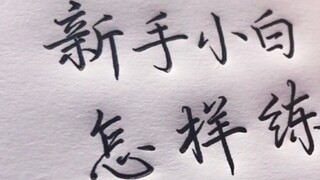 新手小白
怎样练